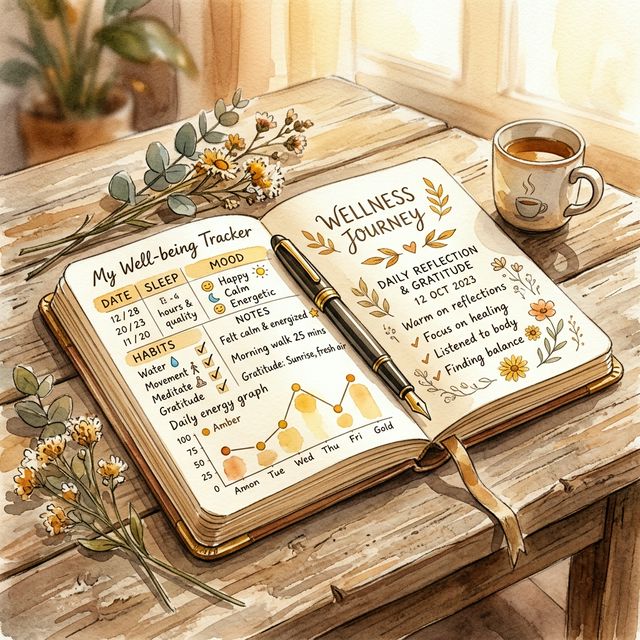 My Well-being Tracker
DATE SLEEP MOOD
12/28
20/23
11/20
hours &
quality
Happy
Calm
Energetic
HABITS
Water
Movement
Meditate
Gratitude
NOTES
Felt calm & energized
Morning walk 25 mins
Gratitude: Sunrise, fresh air
Daily energy graph
Amber
100
75
50
25
0
Amon Tue Wed Thu Fri Gold
WELLNESS
JOURNEY
DAILY REFLECTION
& GRATITUDE
12 OCT 2023
Warm on reflections
Focus on healing
Listened to body
Finding balance